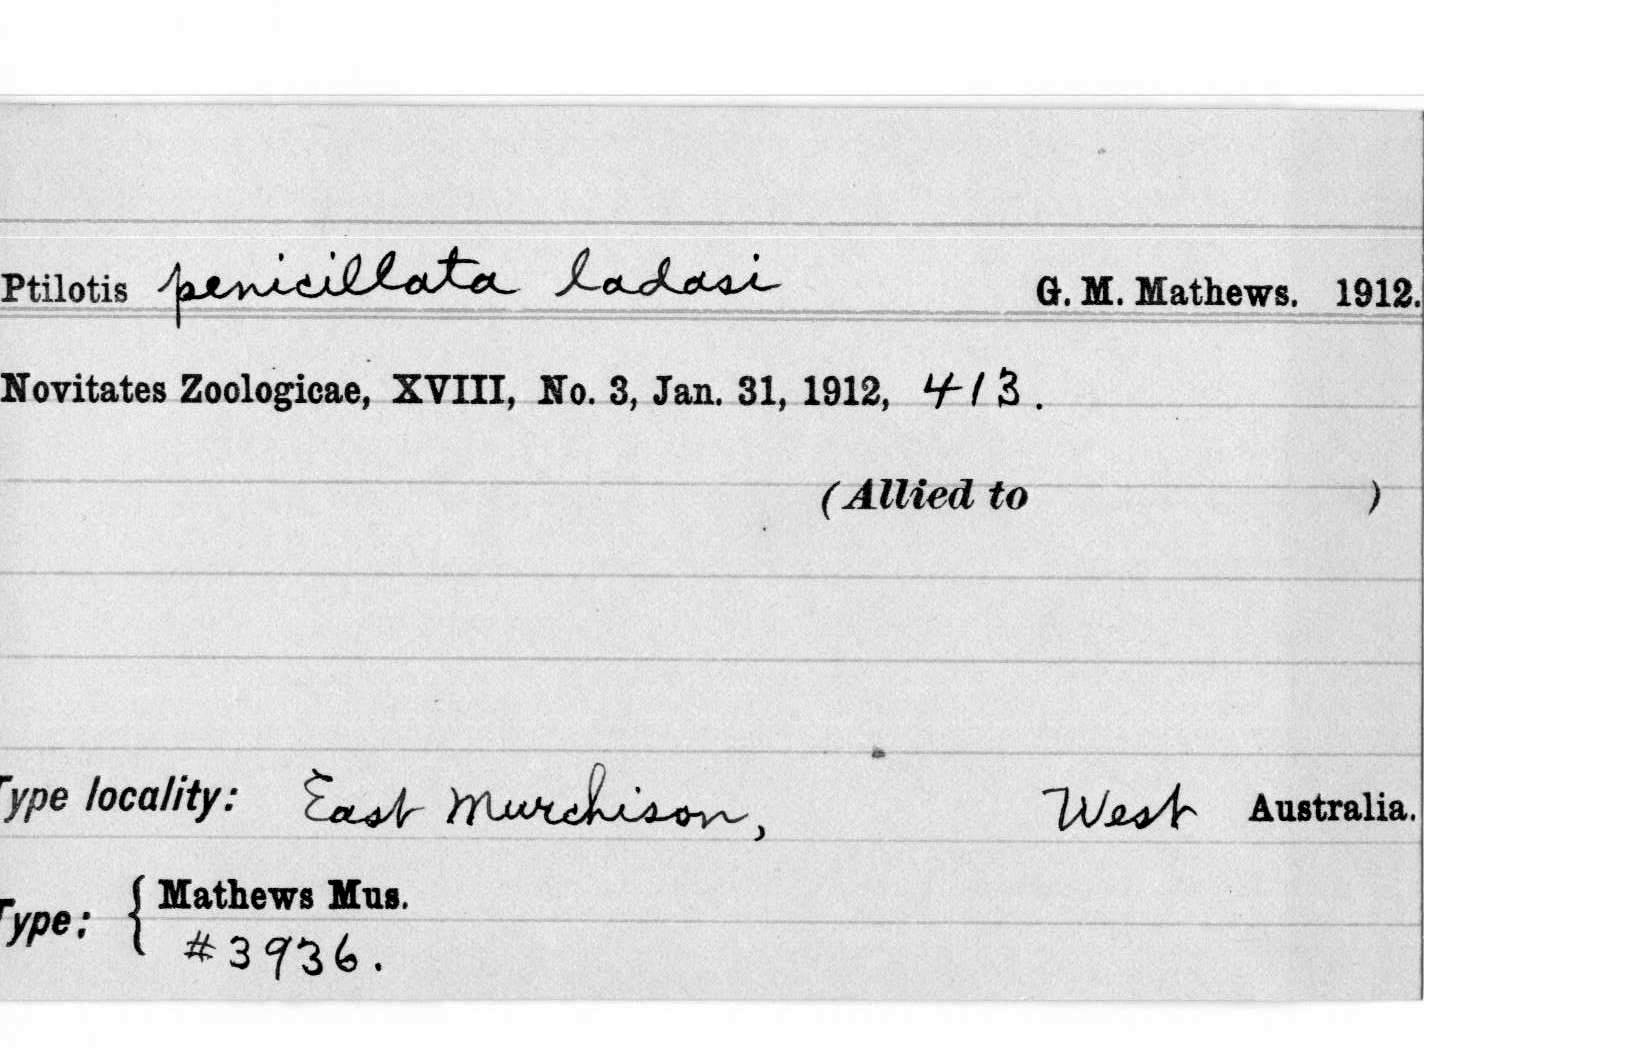 Ptilotis penicillata ladasi G. M. Mathews. 1912.
Novitates Zoologicae, XVIII, No. 3, Jan. 31, 1912, 413.
(Allied to )
Type locality: East Murchison, West Australia.
Type: { Mathews Mus.
#3936.